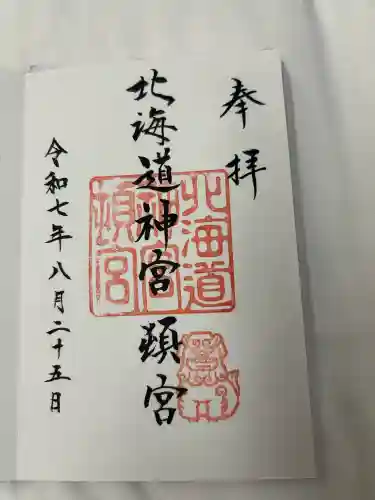 奉拝
北海道神宮頓宮
北海道
神宮
頓宮
令和七年八月二十五日